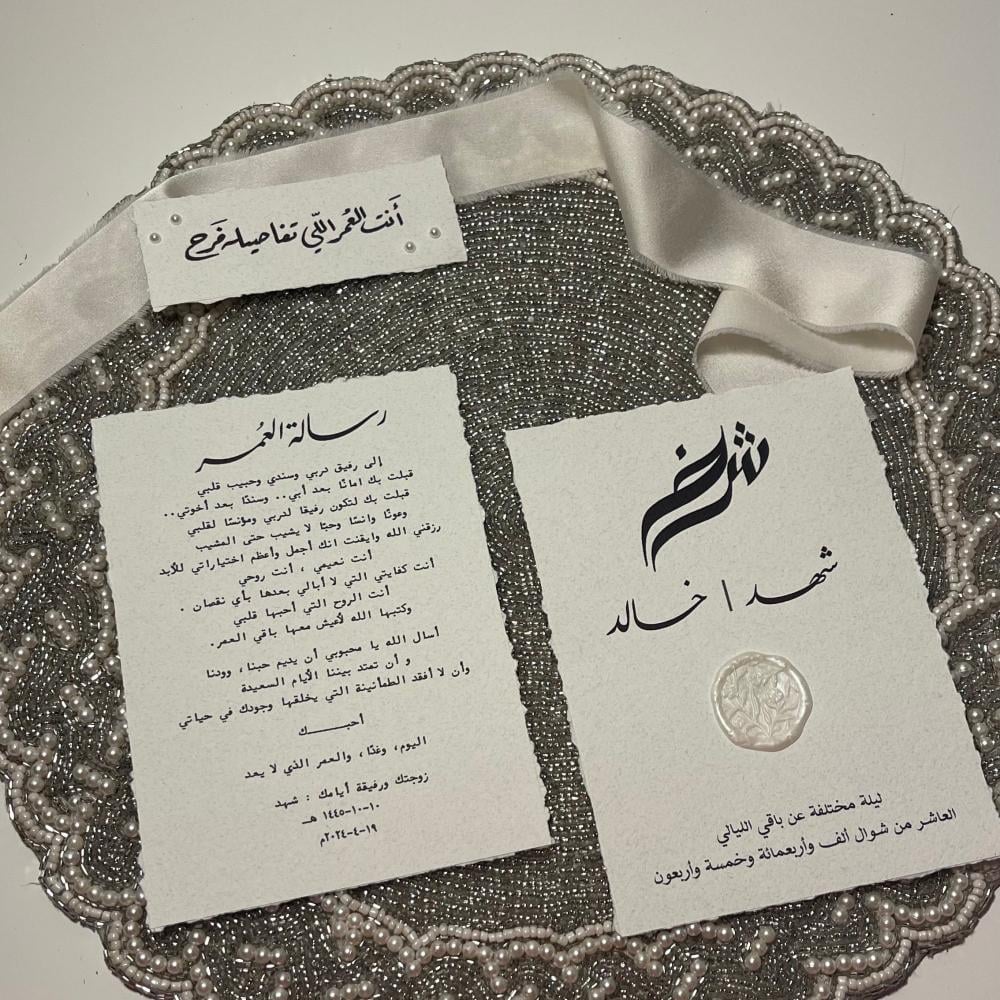 أَنت العُمر اللّي تفاصيله فَرح
رسالة العُمر
إلى رفيق دربي وسندي وحبيب قلبي
قبلت بك امانًا بعد أبي.. وسندًا بعد أخوتي..
قبلت بك لتكون رفيقا لدربي ومؤنسًا لقلبي
وعونًا وانسًا وحبًا لا يشيب حتى المشيب
رزقني الله وايقنت انك أجمل وأعظم اختياراتي للأبد
أنت نعيمي ، أنت روحي
أنت كفايتي التي لا أبالي بعدها بأي نقصان .
أنت الروح التي أحبها قلبي
وكتبها الله لأعيش معها باقي العمر.
أسال الله يا محبوبي أن يديم حبنا، وودنا
و أن تمتد بيننا الأيام السعيدة
وأن لا أفقد الطمأنينة التي يخلقها وجودك في حياتي
أحبــــــك
اليوم، وغدًا، والعمر الذي لا يعد
زوجتك ورفيقة أيامك : شهد
١٠-١٠-١٤٤٥ هـ
١٩-٤-٢٠٢٤م
ش خ
شهد | خالد
ليلة مختلفة عن باقي الليالي
العاشر من شوال ألف وأربعمائة وخمسة وأربعون